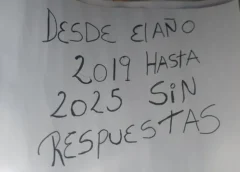 DESDE El AÑO
2019 HASTA
2025 SiN
RESPUESTAS